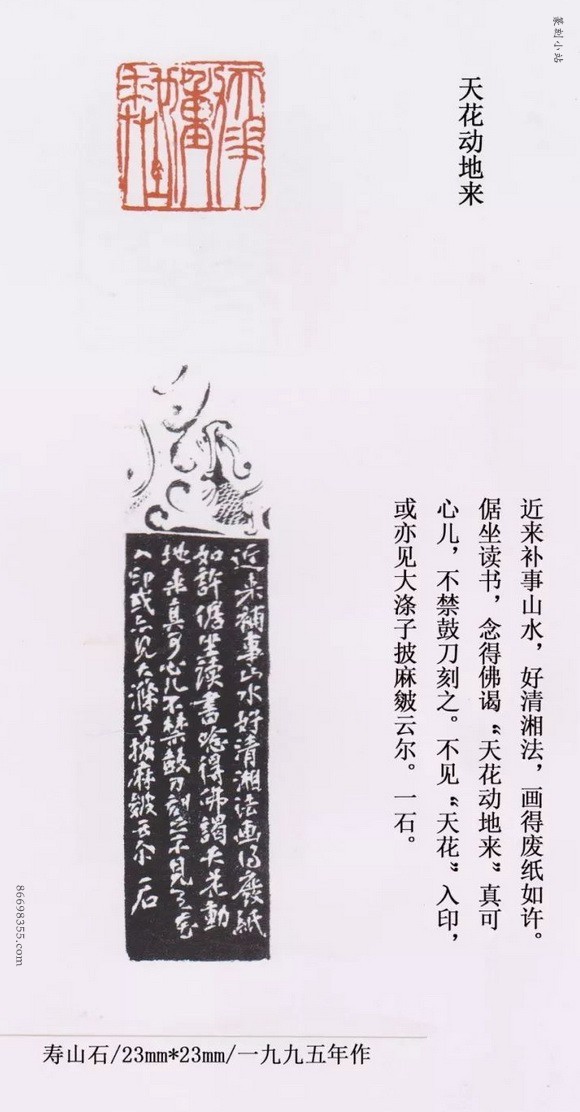 篆刻小站
天花动地来
近来补事山水，好清湘法，画得废纸如许。
倨坐读书，念得佛谒“天花动地来”真可
心儿，不禁鼓刀刻之。不见“天花”入印，
或亦见大涤子披麻皴云尔。一石。
天花動地来
近来補事山水好清湘法画得廢紙
如許倨坐读書唸得佛謁天花動
地来真可心儿不禁鼓刀刻之不見天花
入印或亦見大滌子披麻皴云尔 一石
86698355.com
寿山石/23mm*23mm/一九九五年作